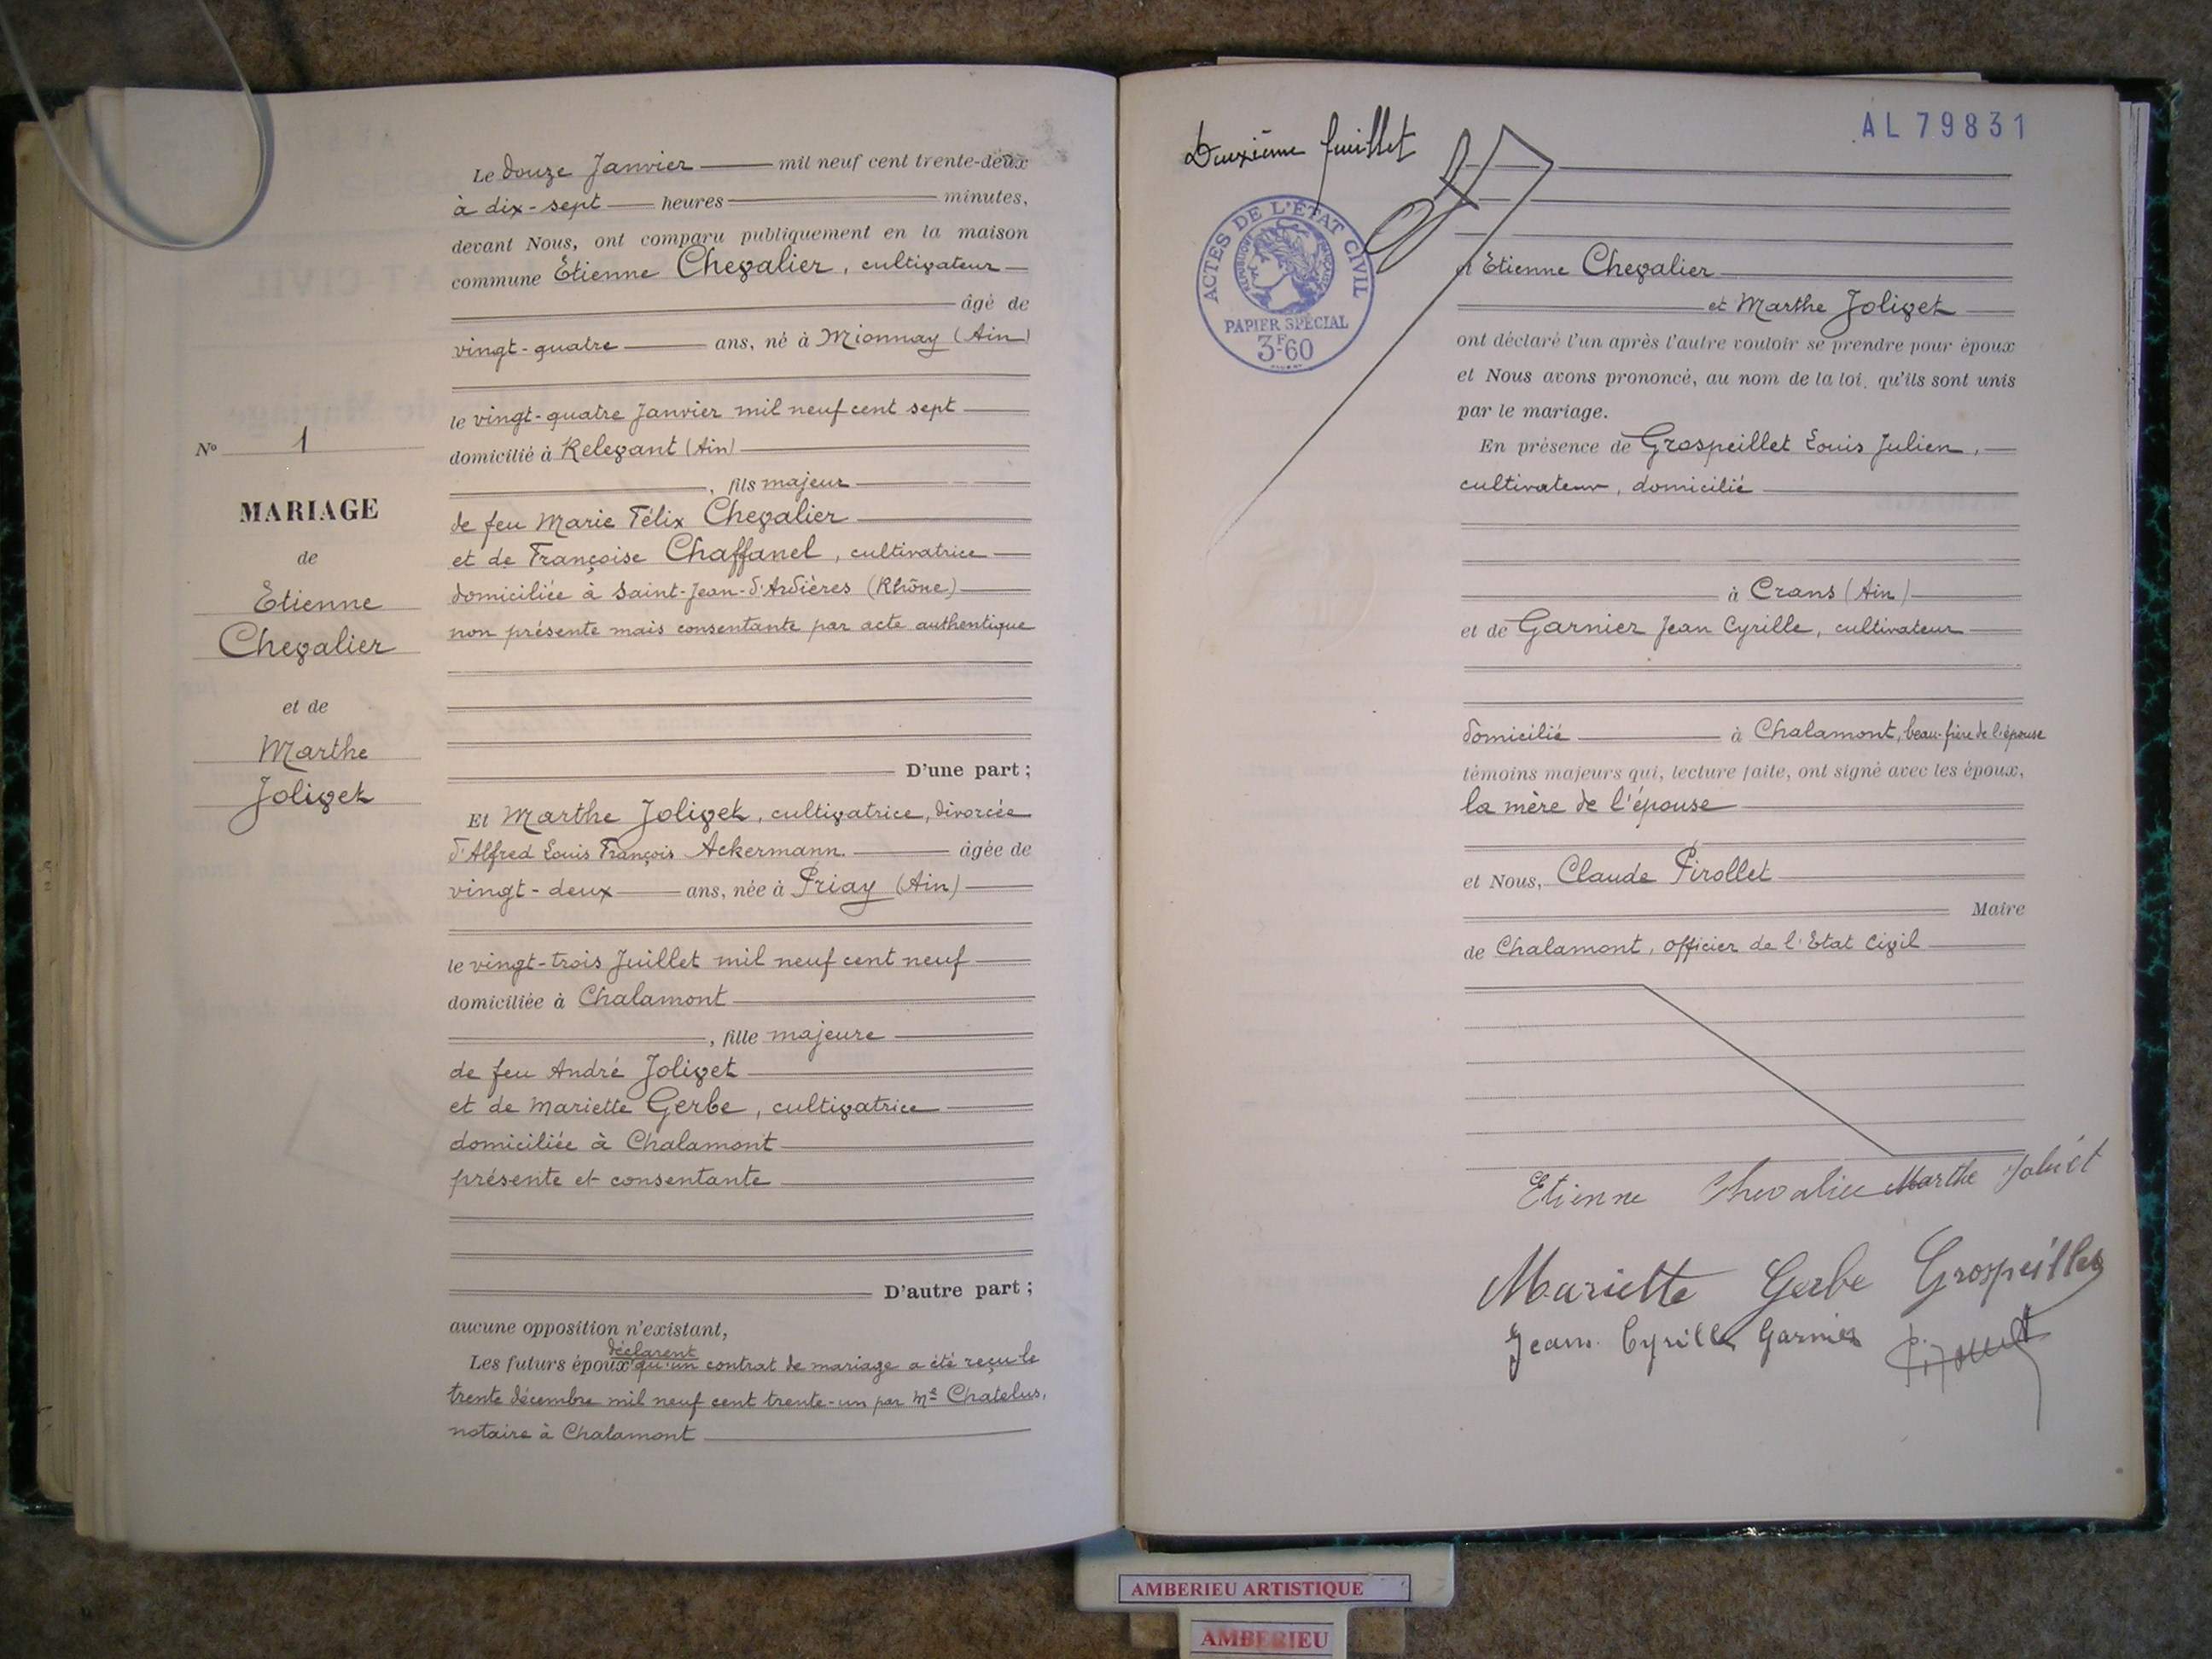 Le douze Janvier mil neuf cent trente-deux
à dix-sept heures minutes,
devant Nous, ont comparu publiquement en la maison
commune Etienne Chevalier, cultivateur
âgé de
vingt-quatre ans, né à Mionnay (Ain)
le vingt-quatre Janvier mil neuf cent sept
domicilié à Relevant (Ain)
, fils majeur
de feu Marie Félix Chevalier
et de Françoise Chaffanel, cultivatrice
domiciliée à Saint-Jean-d'Ardières (Rhône)
non présente mais consentante par acte authentique
D'une part;
Nº 1
MARIAGE
de
Etienne
Chevalier
et de
Marthe
Jolivet
Et Marthe Jolivet, cultivatrice, divorcée
d'Alfred Louis François Ackermann. âgée de
vingt-deux ans, née à Priay (Ain)
le vingt-trois Juillet mil neuf cent neuf
domiciliée à Chalamont
, fille majeure
de feu André Jolivet
et de Mariette Gerbe, cultivatrice
domiciliée à Chalamont
présente et consentante
D'autre part;
aucune opposition n'existant,
déclarent
Les futurs époux qu'un contrat de mariage a été reçu le
trente décembre mil neuf cent trente-un par Me Chatelus,
notaire à Chalamont
Deuxième feuillet
AL 79831
ACTES DE L'ÉTAT CIVIL
RÉPUBLIQUE FRANÇAISE
PAPIER SPÉCIAL
3F60
et Etienne Chevalier
et Marthe Jolivet
ont déclaré l'un après l'autre vouloir se prendre pour époux
et Nous avons prononcé, au nom de la loi, qu'ils sont unis
par le mariage.
En présence de Grospeillet Louis Julien,
cultivateur, domicilié
à Crans (Ain)
et de Garnier Jean Cyrille, cultivateur
domicilié à Chalamont, beau-frère de l'épouse
témoins majeurs qui, lecture faite, ont signé avec les époux,
la mère de l'épouse
et Nous, Claude Pirollet
Maire
de Chalamont, officier de l'Etat Civil
Etienne Chevalier Marthe Jolivet
Mariette Gerbe Grospeillet
Jean Cyrille Garnier Pirollet
AMBERIEU ARTISTIQUE
AMBERIEU